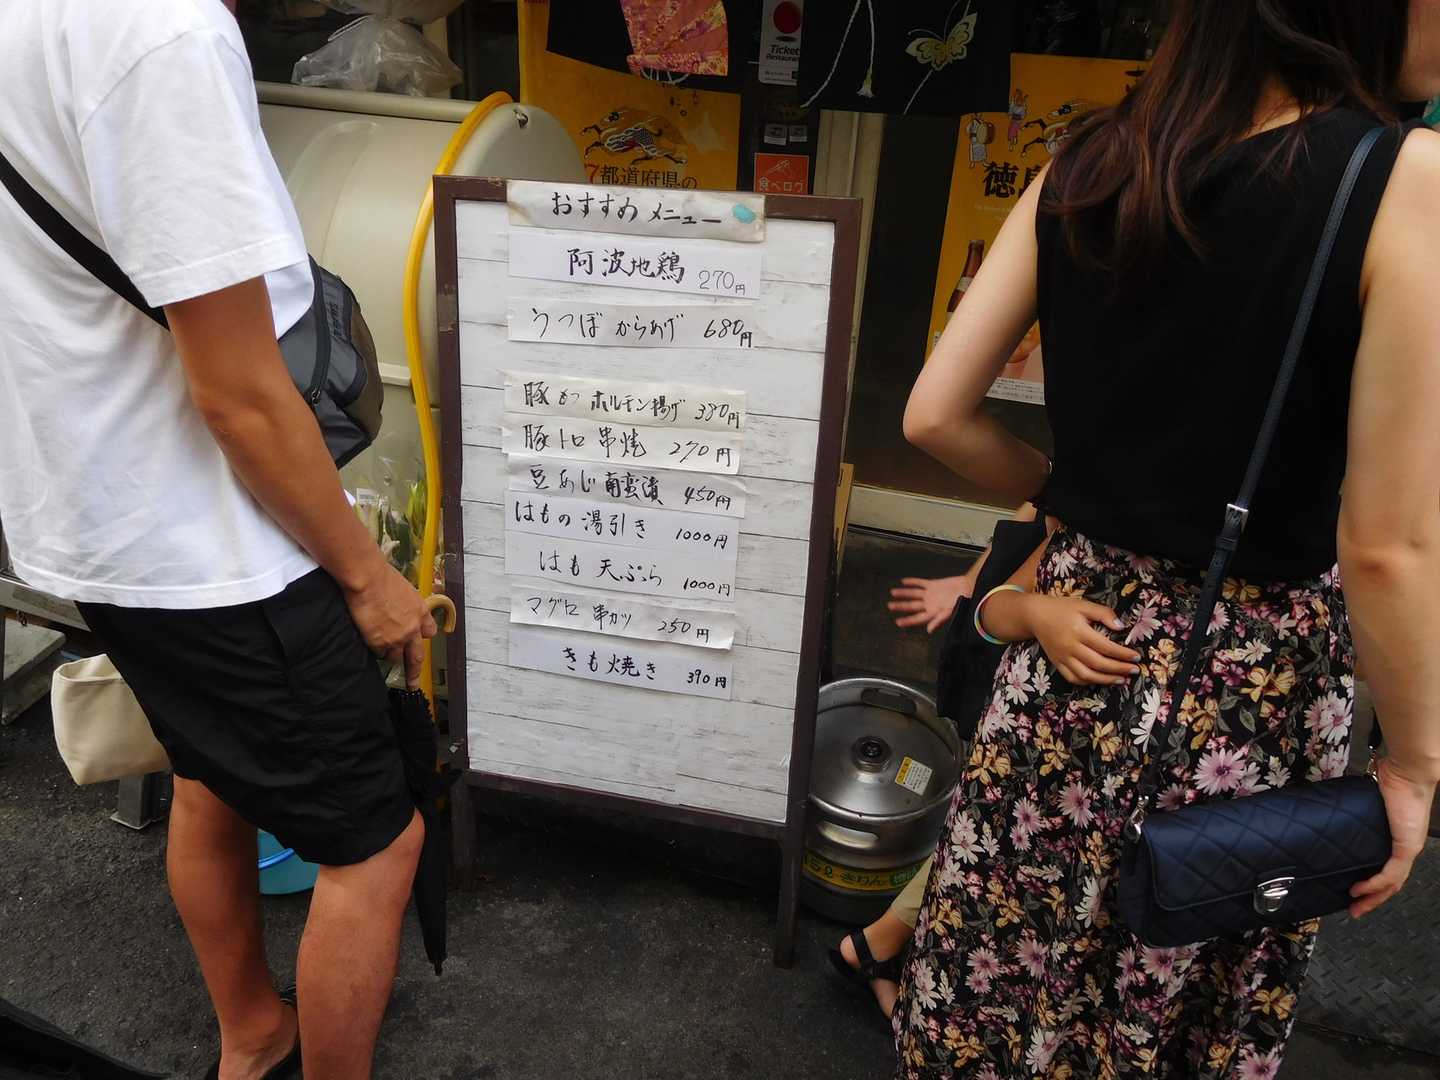 Ticket
Restaurant
7都道府県の
食べログ
徳
おすすめ メニュー
阿波地鶏 270円
うつぼ からあげ 680円
豚もつ ホルモン揚げ 380円
豚トロ 串焼 270円
豆あじ南蛮漬 450円
はもの湯引き 1000円
はも 天ぷら 1000円
マグロ 串カツ 250円
きも焼き 390円